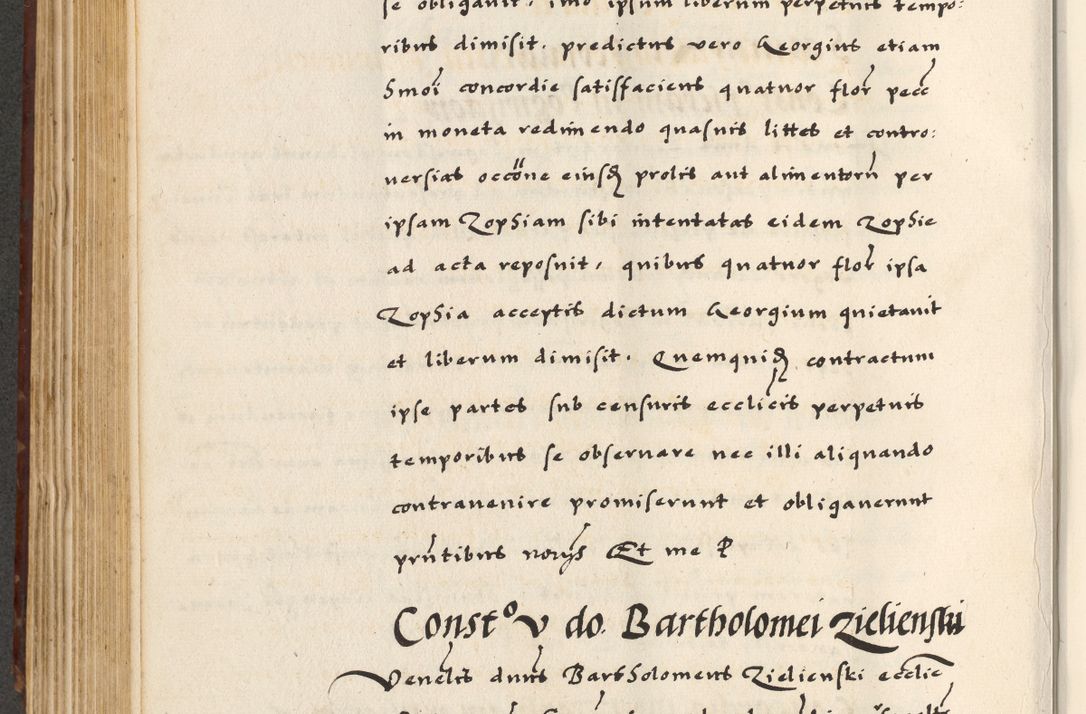 se obligavit, imo ipsum liberum perpetuis tempo:
ribus dimisit. predictus vero Georgius etiam
Smoi concordie satisfaciens quatuor flor pecc
in moneta redimendo quasuis littes et contro:
versias occone eiusq prolis aut alimentoru per
ipsam Zophiam sibi intentatas eidem Zophie
ad acta reposuit, quibus quatuor flor ipsa
Zophia acceptis dictum Georgium quietavit
et liberum dimisit. Quemquidq contractum
ipse partes sub censuris ecclicis perpetuis
temporibus se observare nec illi aliquando
contravenire promiserunt et obligaverunt
prntibus norys Et me P
Consto v do. Bartholomei Zielienski
Venelis dnus Bartholomeus Zielienski ecclie